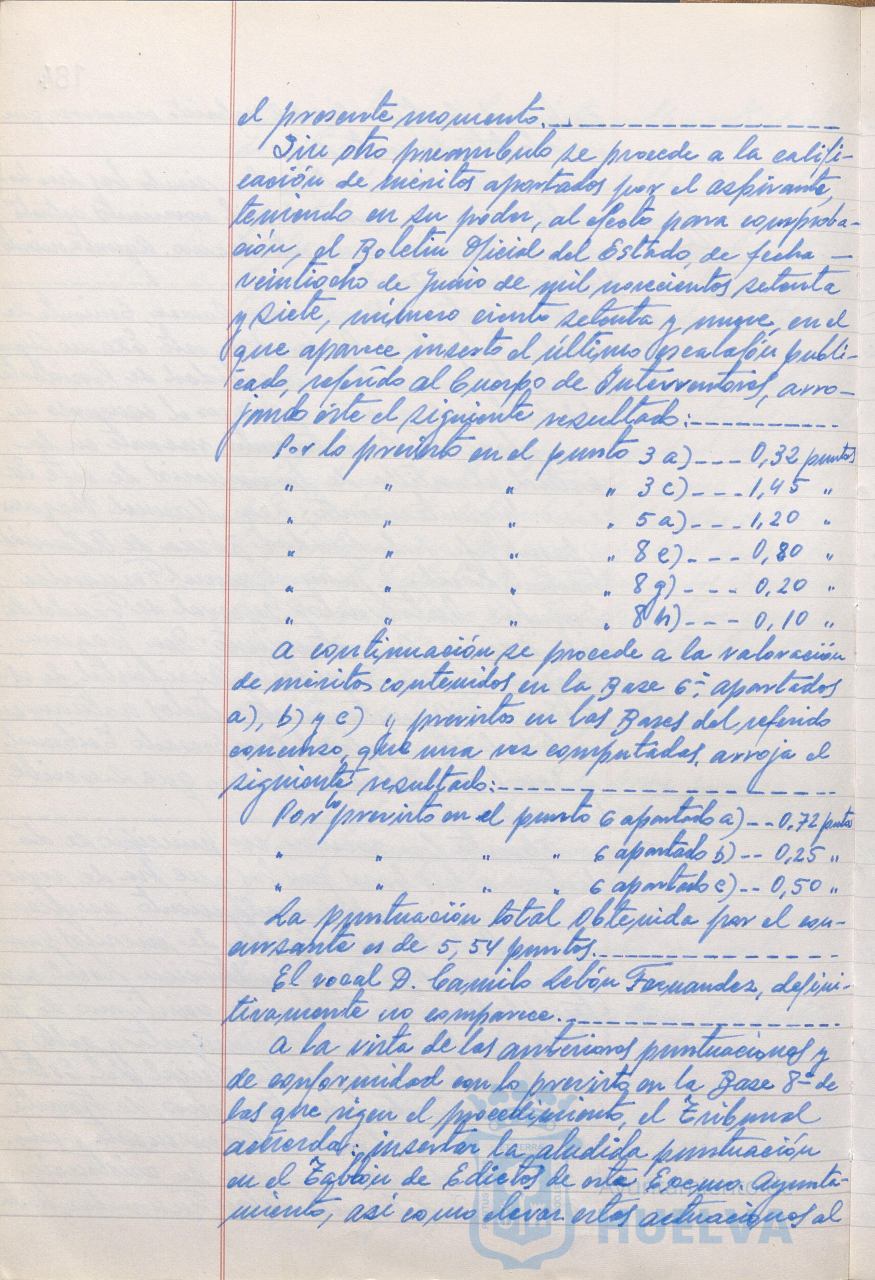 el presente momento.
Sin otro preambulo se procede a la califi-
cación de méritos aportados por el aspirante,
teniendo en su poder, al efecto para comproba-
ción, el Boletin Oficial del Estado, de fecha —
veintiocho de Junio de mil novecientos setenta
y siete, número ciento setenta y nueve, en el
que aparece inserto el último escalafón publi-
cado, referido al Cuerpo de Interventores, arro-
jando éste el siguiente resultado:
Por lo previsto en el punto 3 a) --- 0,32 puntos
" " " " 3 c) --- 1,45 "
" " " " 5 a) --- 1,20 "
" " " " 8 e) --- 0,80 "
" " " " 8 g) --- 0,20 "
" " " " 8 h) --- 0,10 "
A continuación se procede a la valoración
de méritos contenidos en la Base 6ª, apartados
a), b) y c) " previstos en las Bases del referido
concurso, que una vez computadas, arroja el
siguiente resultado:
Por lo previsto en el punto 6 apartado a) -- 0,72 puntos
" " " " 6 apartado b) -- 0,25 "
" " " " 6 apartado c) -- 0,50 "
La puntuación total obtenida por el con-
cursante es de 5,54 puntos.
El vocal D. Camilo Lebón Fernandez, defini-
tivamente no comparece.
A la vista de las anteriores puntuaciones y
de conformidad con lo previsto en la Base 8ª de
las que rigen el procedimiento, el Tribunal
acuerda: insertar la aludida puntuación
en el Tablón de Edictos de este Excmo. Ayunta-
miento, así como elevar estas actuaciones al
HUELVA